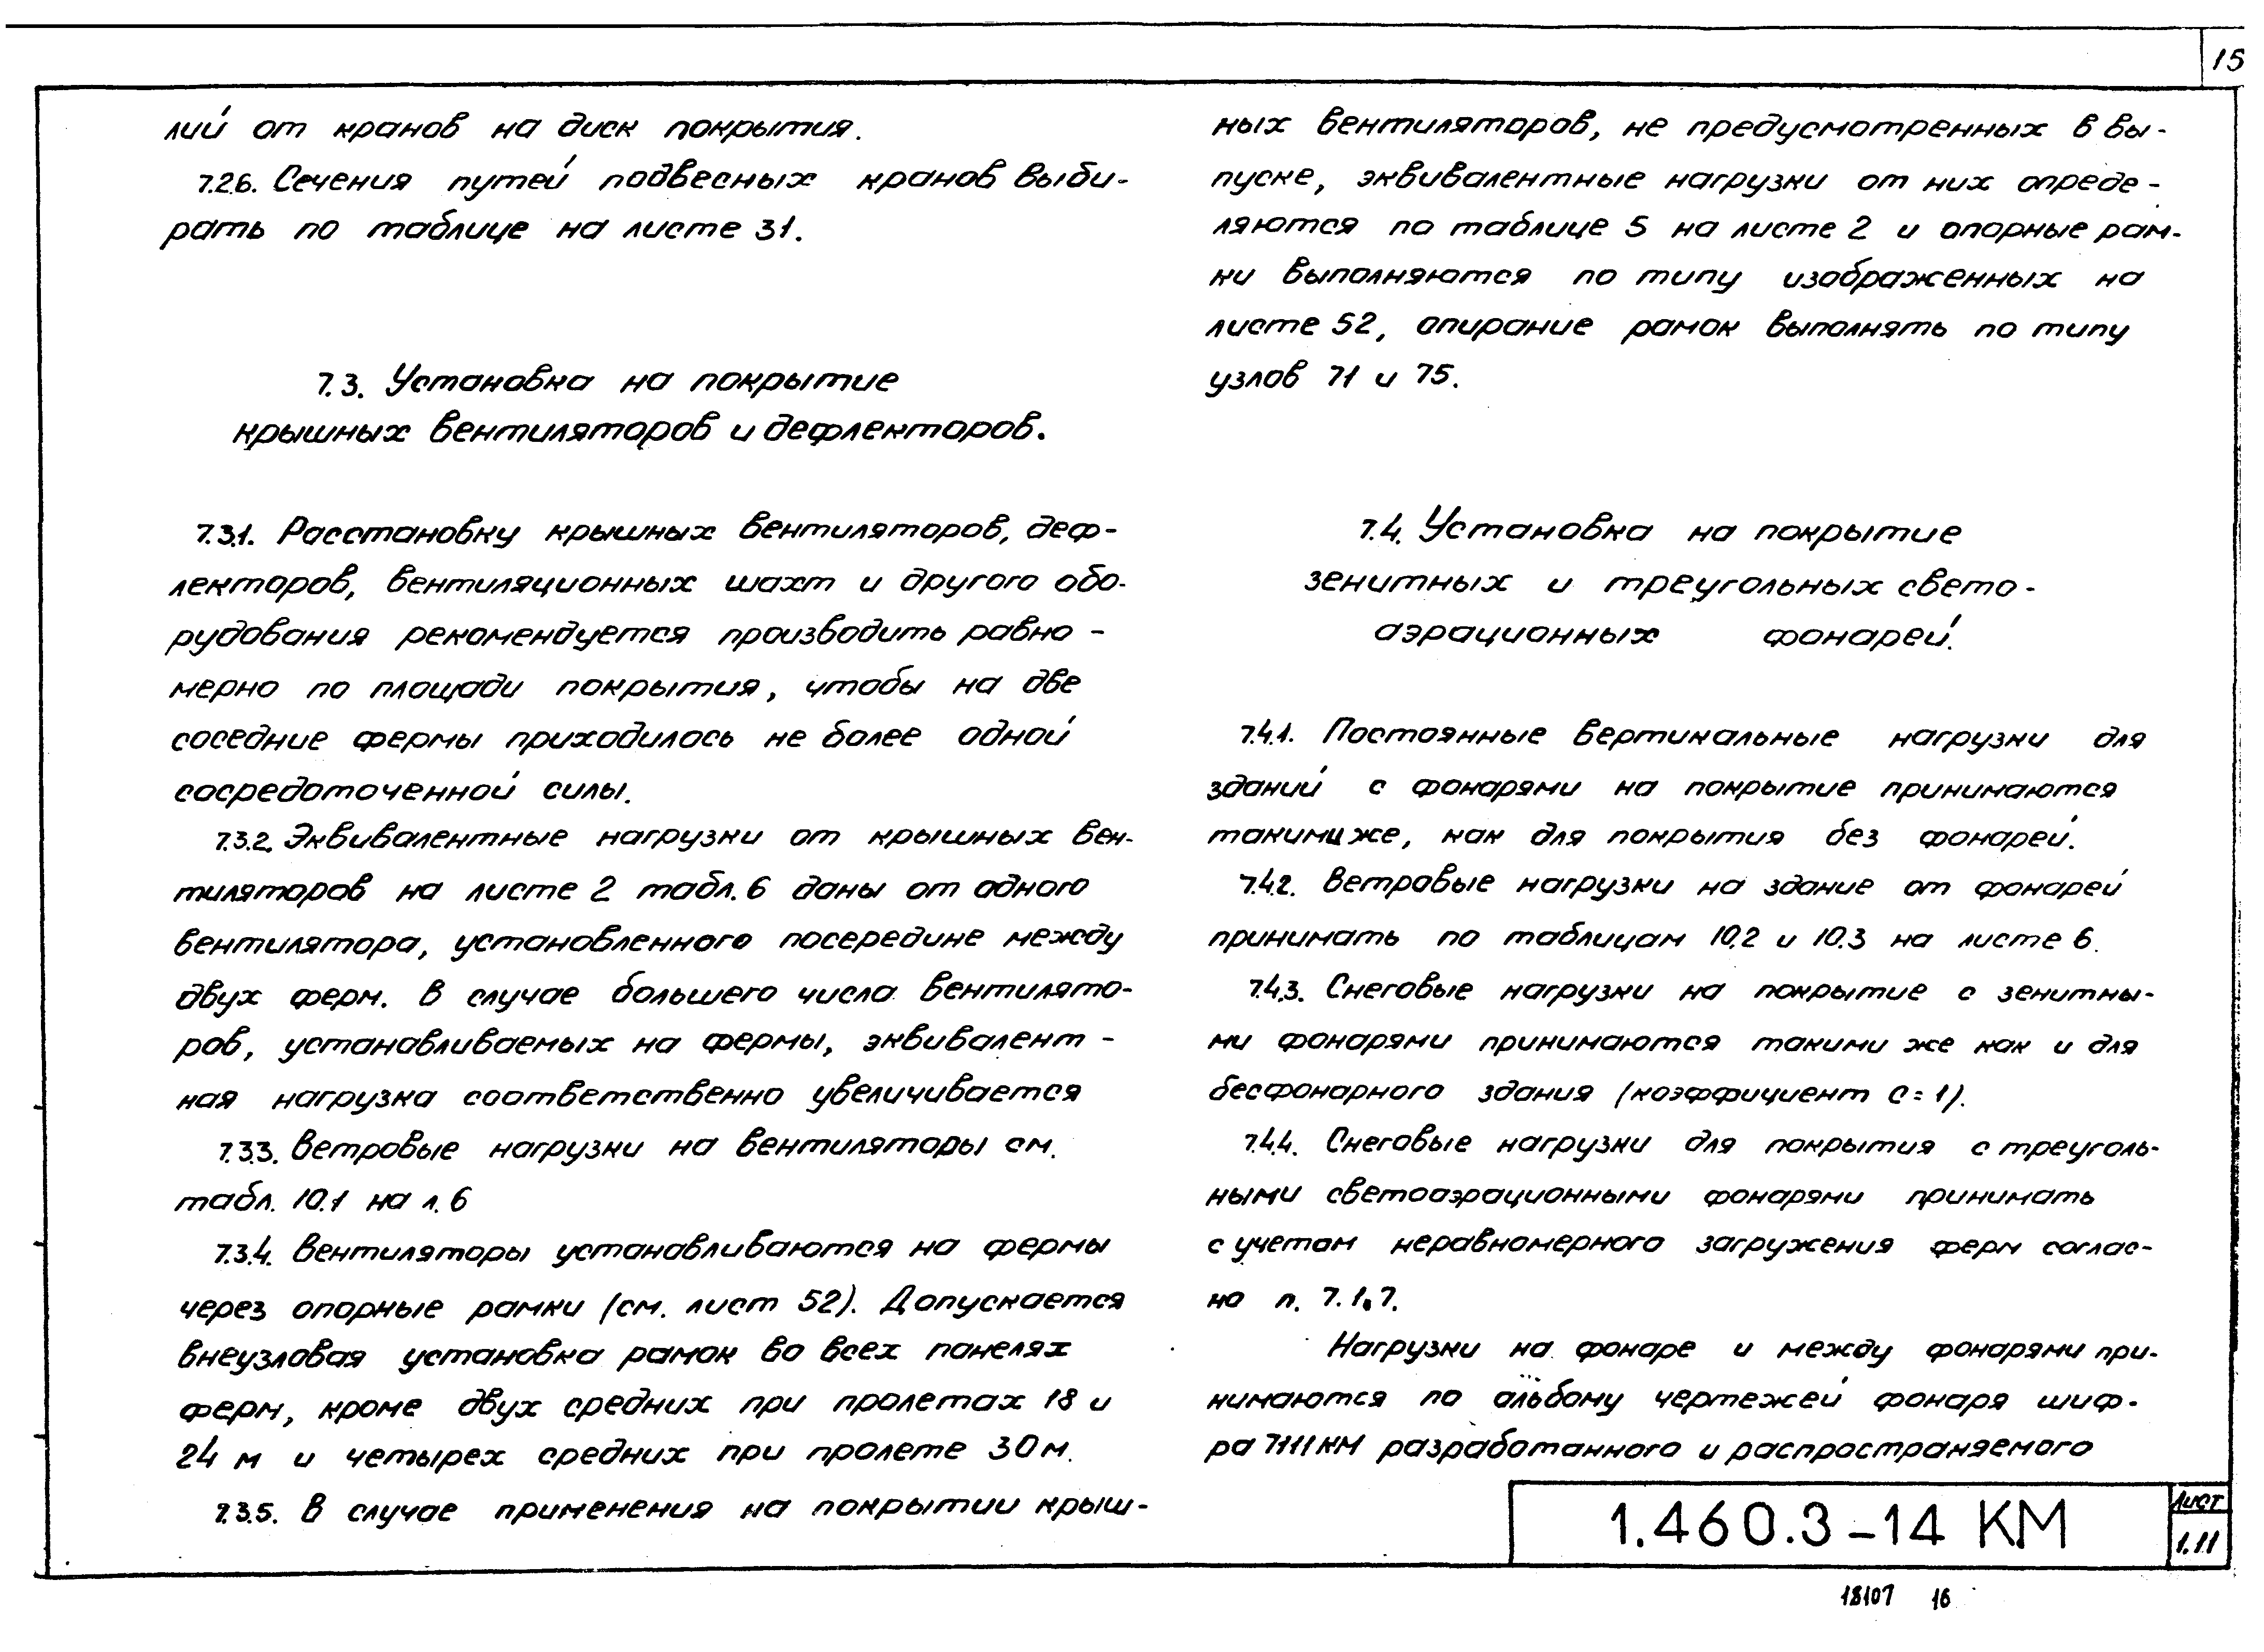 15
лий от кранов на диск покрытия.
7.2.6. Сечения путей подвесных кранов выби-
рать по таблице на листе 31.
7.3. Установка на покрытие
крышных вентиляторов и дефлекторов.
7.3.1. Расстановку крышных вентиляторов, деф-
лекторов, вентиляционных шахт и другого обо-
рудования рекомендуется производить равно-
мерно по площади покрытия, чтобы на две
соседние фермы приходилось не более одной
сосредоточенной силы.
7.3.2. Эквивалентные нагрузки от крышных вен-
тиляторов на листе 2 табл. 6 даны от одного
вентилятора, установленного посередине между
двух ферм. В случае большего числа вентилято-
ров, устанавливаемых на фермы, эквивалент-
ная нагрузка соответственно увеличивается
7.3.3. Ветровые нагрузки на вентиляторы см.
табл. 10.1 на л. 6
7.3.4. Вентиляторы устанавливаются на фермы
через опорные рамки (см. лист 52). Допускается
внеузловая установка рамок во всех панелях
ферм, кроме двух средних при пролетах 18 и
24 м и четырех средних при пролете 30 м.
7.3.5. В случае применения на покрытии крыш-
ных вентиляторов, не предусмотренных в вы-
пуске, эквивалентные нагрузки от них опреде-
ляются по таблице 5 на листе 2 и опорные рам-
ки выполняются по типу изображенных на
листе 52, опирание рамок выполнять по типу
узлов 71 и 75.
7.4. Установка на покрытие
зенитных и треугольных свето-
аэрационных фонарей.
7.4.1. Постоянные вертикальные нагрузки для
зданий с фонарями на покрытие принимаются
такими же, как для покрытия без фонарей.
7.4.2. Ветровые нагрузки на здание от фонарей
принимать по таблицам 10.2 и 10.3 на листе 6.
7.4.3. Снеговые нагрузки на покрытие с зенитны-
ми фонарями принимаются такими же как и для
бесфонарного здания (коэффициент С = 1).
7.4.4. Снеговые нагрузки для покрытия с треуголь-
ными светоаэрационными фонарями принимать
с учетом неравномерного загружения ферм соглас-
но п. 7.1.7.
Нагрузки на фонаре и между фонарями при-
нимаются по альбому чертежей фонаря шиф-
ра 7111КМ разработанного и распространяемого
1.460.3-14 КМ
Лист
1.11
18107 16